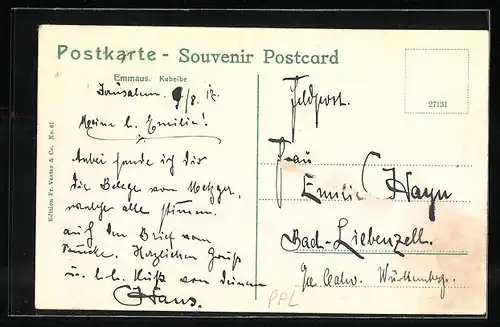 Postkarte - Souvenir Postcard
Emmaus. Kubeibe
Jerusalem. 9/8. 17.
Meine l. Emilie!
Anbei sende ich dir
die Belege von Metzger,
welche alle stimmen.
auch den Brief vom
Herzlichen Gruß
u. l. l. Kuß von deinem
Hans.
Edition Fr. Vester & Co. No. 61
27131
Feldpost.
Frau
Emilie Hayn
Bad-Liebenzell.
Calw. Württemberg.
PAL